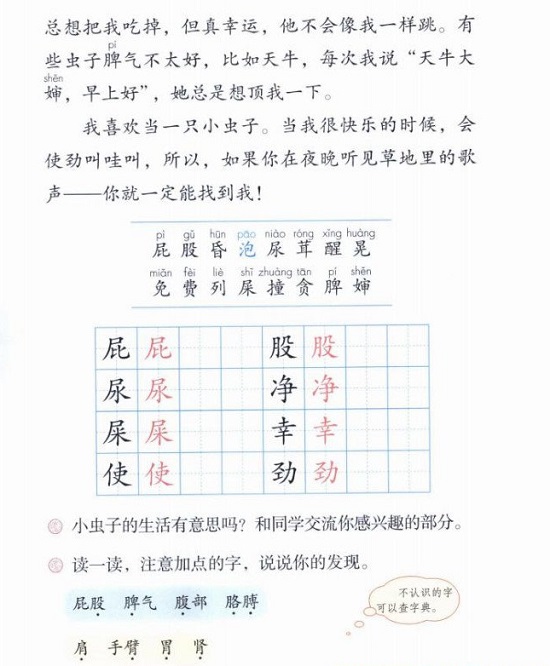 总想把我吃掉，但真幸运，他不会像我一样跳。有
pí
些虫子脾气不太好，比如天牛，每次我说“天牛大
shěn
婶，早上好”，她总是想顶我一下。
我喜欢当一只小虫子。当我很快乐的时候，会
使劲叫哇叫，所以，如果你在夜晚听见草地里的歌
声——你就一定能找到我！
pì gǔ hūn pāo niào róng xǐng huàng
屁 股 昏 泡 尿 茸 醒 晃
miǎn fèi liè shǐ zhuàng tān pí shěn
免 费 列 屎 撞 贪 脾 婶
屁 屁 股 股
尿 尿 净 净
屎 屎 幸 幸
使 使 劲 劲
小虫子的生活有意思吗？和同学交流你感兴趣的部分。
读一读，注意加点的字，说说你的发现。
屁股 脾气 腹部 胳膊
不认识的字
可以查字典。
肩 手臂 胃 肾